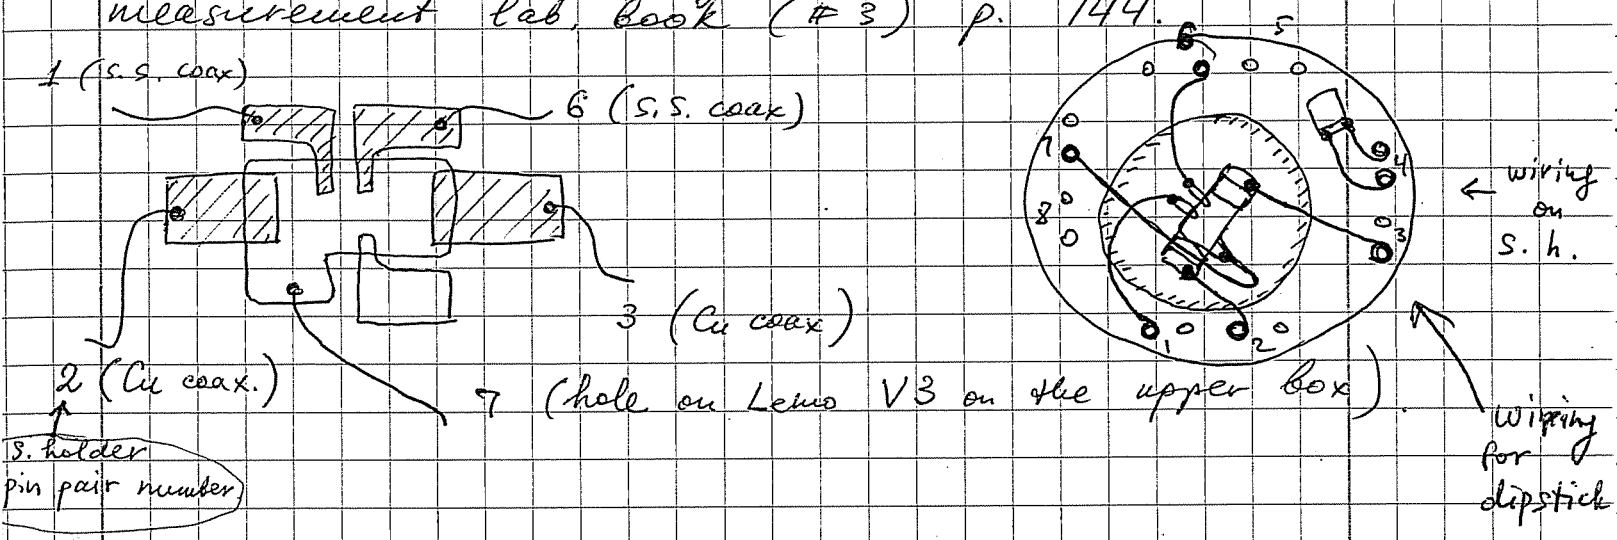 measurement lab. book (# 3) p. 144.
1 (s.s. coax)
6 (s.s. coax)
2 (Cu coax.)
3 (Cu coax)
7 (hole on Lemo V3 on the upper box)
s. holder
pin pair number
6 5
7
4
8
3
1 2
← wiring
on
s.h.
wiring
for
dipstick